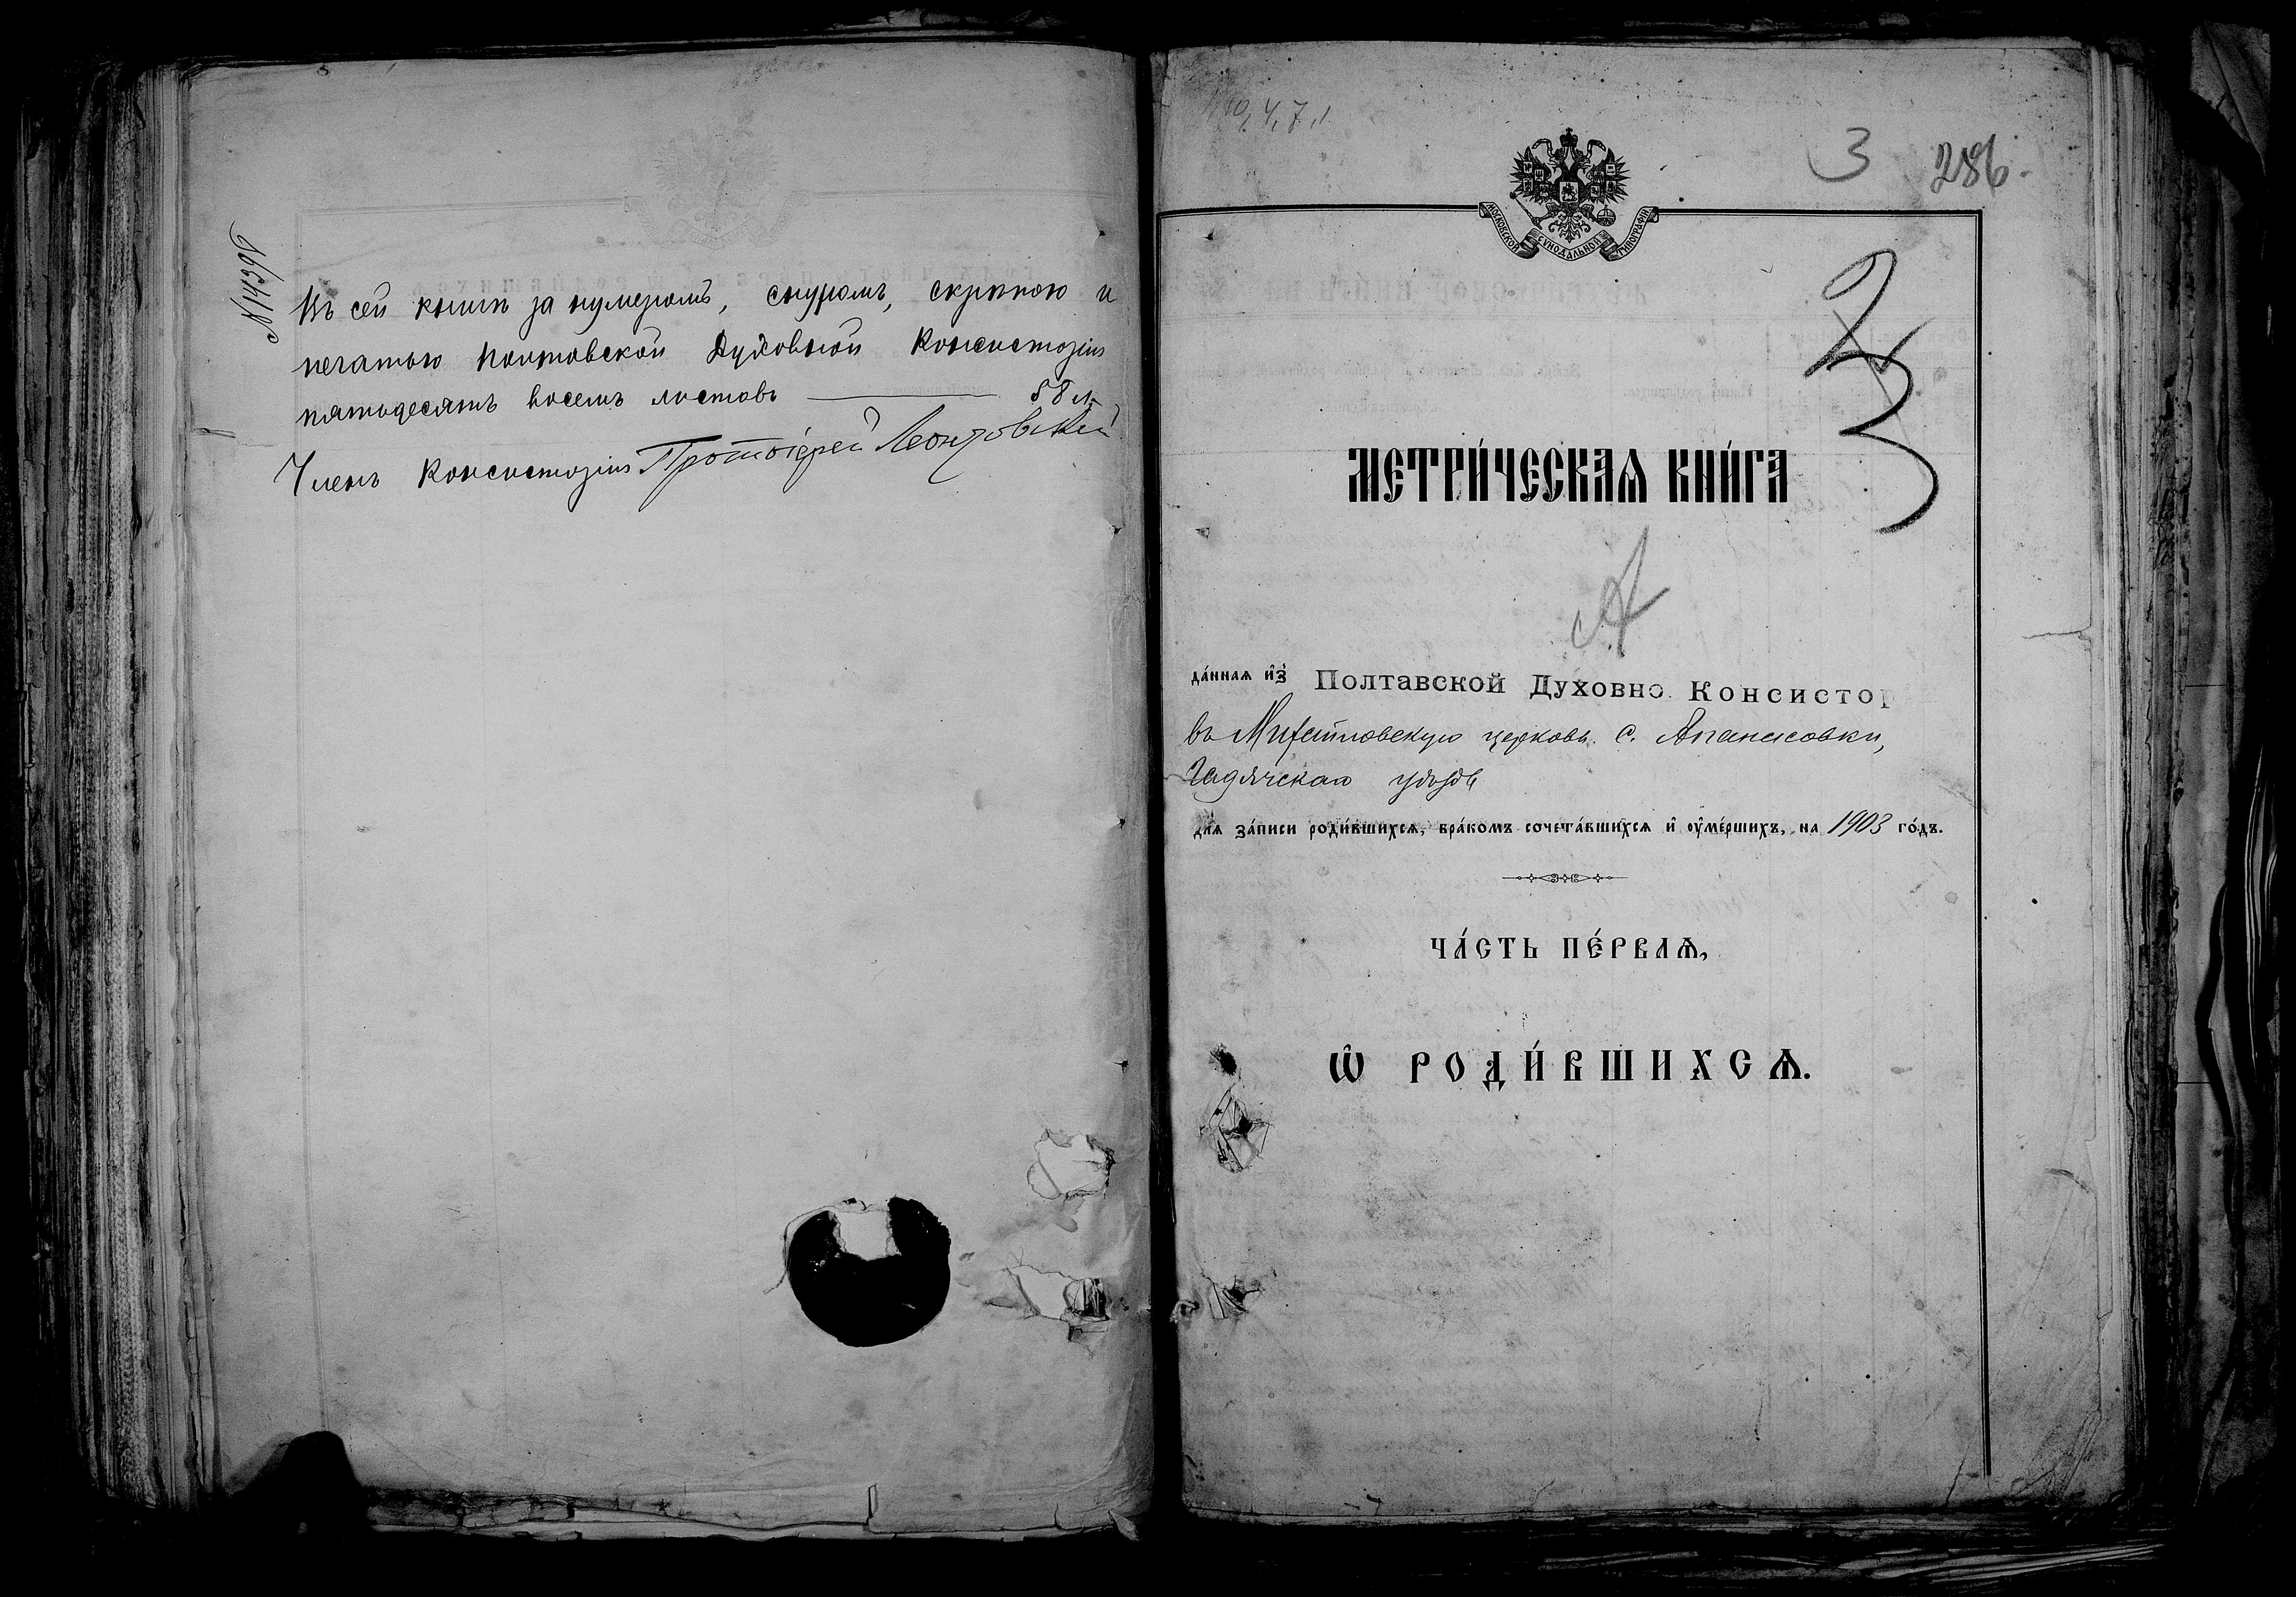 № 14396
Въ сей книгѣ за нумеромъ, снуромъ, скрѣпою и
печатью Полтавской Духовной Консисторіи
пятьдесятъ восемъ листовъ — 58 л.
Членъ Консисторіи Протоіерей Леонтовскій
4, 7,
3 286.
МОСКОВСКОЙ СѴНОДАЛЬНОЙ ТИПОГРАФІИ
2
3
МЕТРИ́ЧЕСКАѦ КНИ́ГА
А
да́ннаѧ и҆з̾ Полтавской Духовно Консистор
въ Михайловскую церковь с. Апанасовки,
Гадячскаго уѣзда
длѧ̀ за́писи роди́вшихсѧ, бра́комъ сочета́вшихсѧ и҆ ᲂу҆ме́ршихъ, на 1903 го́дъ.
ЧА́СТЬ ПЕ́РВАѦ,
Ѡ҆ РОДИ́ВШИХСѦ.